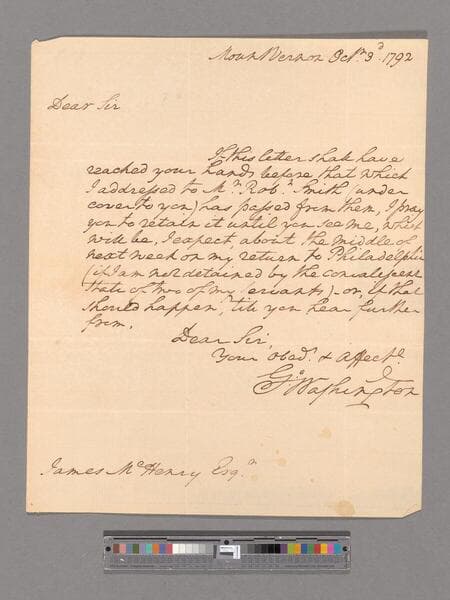 Mount Vernon Octr. 3d. 1792
Dear Sir
If this letter shall have
reached your hands before that which
I addressed to Mr. Robt. Smith (under
cover to you) has passed from them, I pray
you to retain it until you see me, which
will be, I expect, about the middle of
next week on my return to Philadelphia
(if I am not detained by the convalescent
state of two of my servants) or, if that
should happen, 'till you hear further
from,
Dear Sir,
Your Obedt. & Affecte.
Go. Washington
James McHenry Esqr.